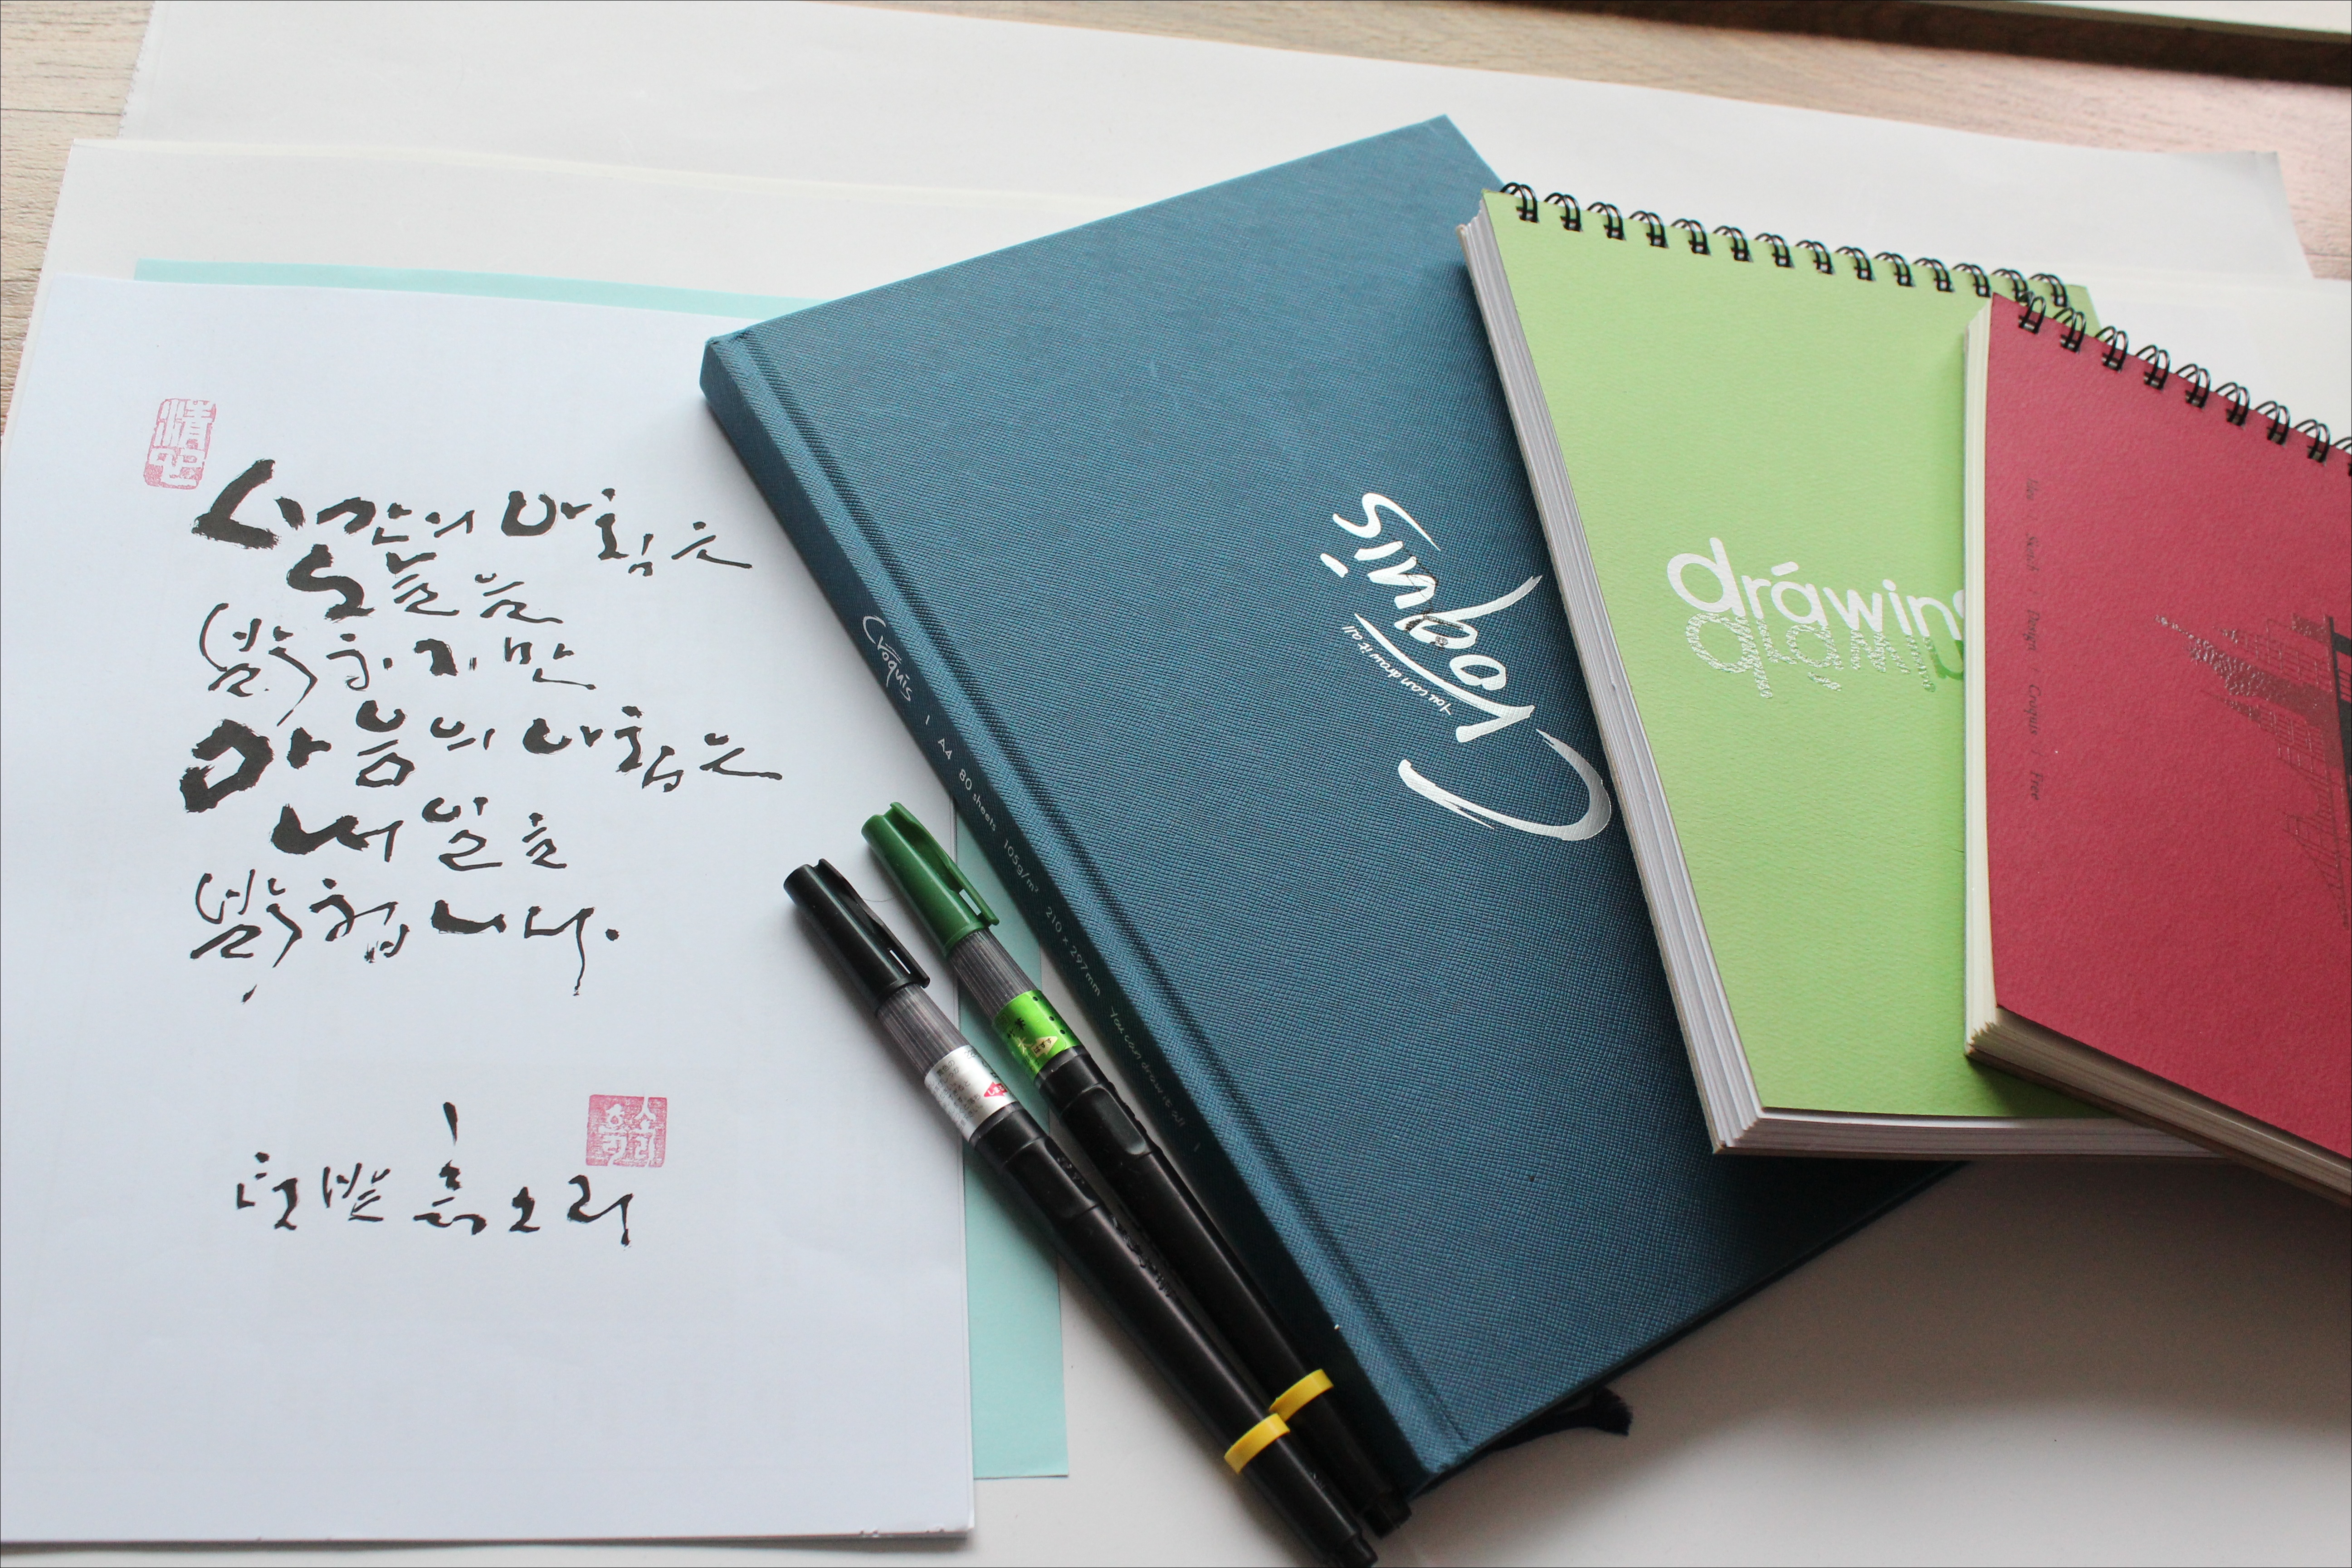 시간의 마침은
오늘을
밝히지만
마음의 마침은
내일을
밝힙니다.
텃밭 흙소리
Croquis
You can draw it all
Croquis | A4 80 sheets 105g/m² 210 × 297mm You can draw it all |
drawing
Design / Croquis / Free